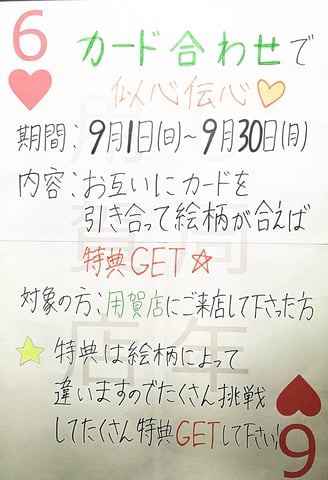 6
カード合わせで
似心伝心♡
期間：9月1日(日)～9月30日(月)
内容：お互いにカードを
引き合って絵柄が合えば
特典GET☆
対象の方：用賀店にご来店して下さった方
★特典は絵柄によって
違いますのでたくさん挑戦
してたくさん特典GETして下さい!
6